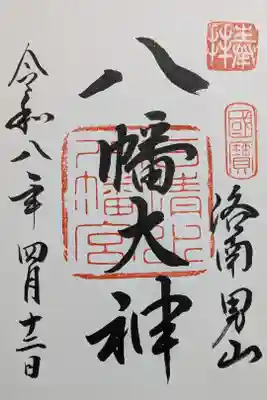 奉拝
國寶
洛南 男山
八幡大神
石清水八幡宮
令和八年四月十二日